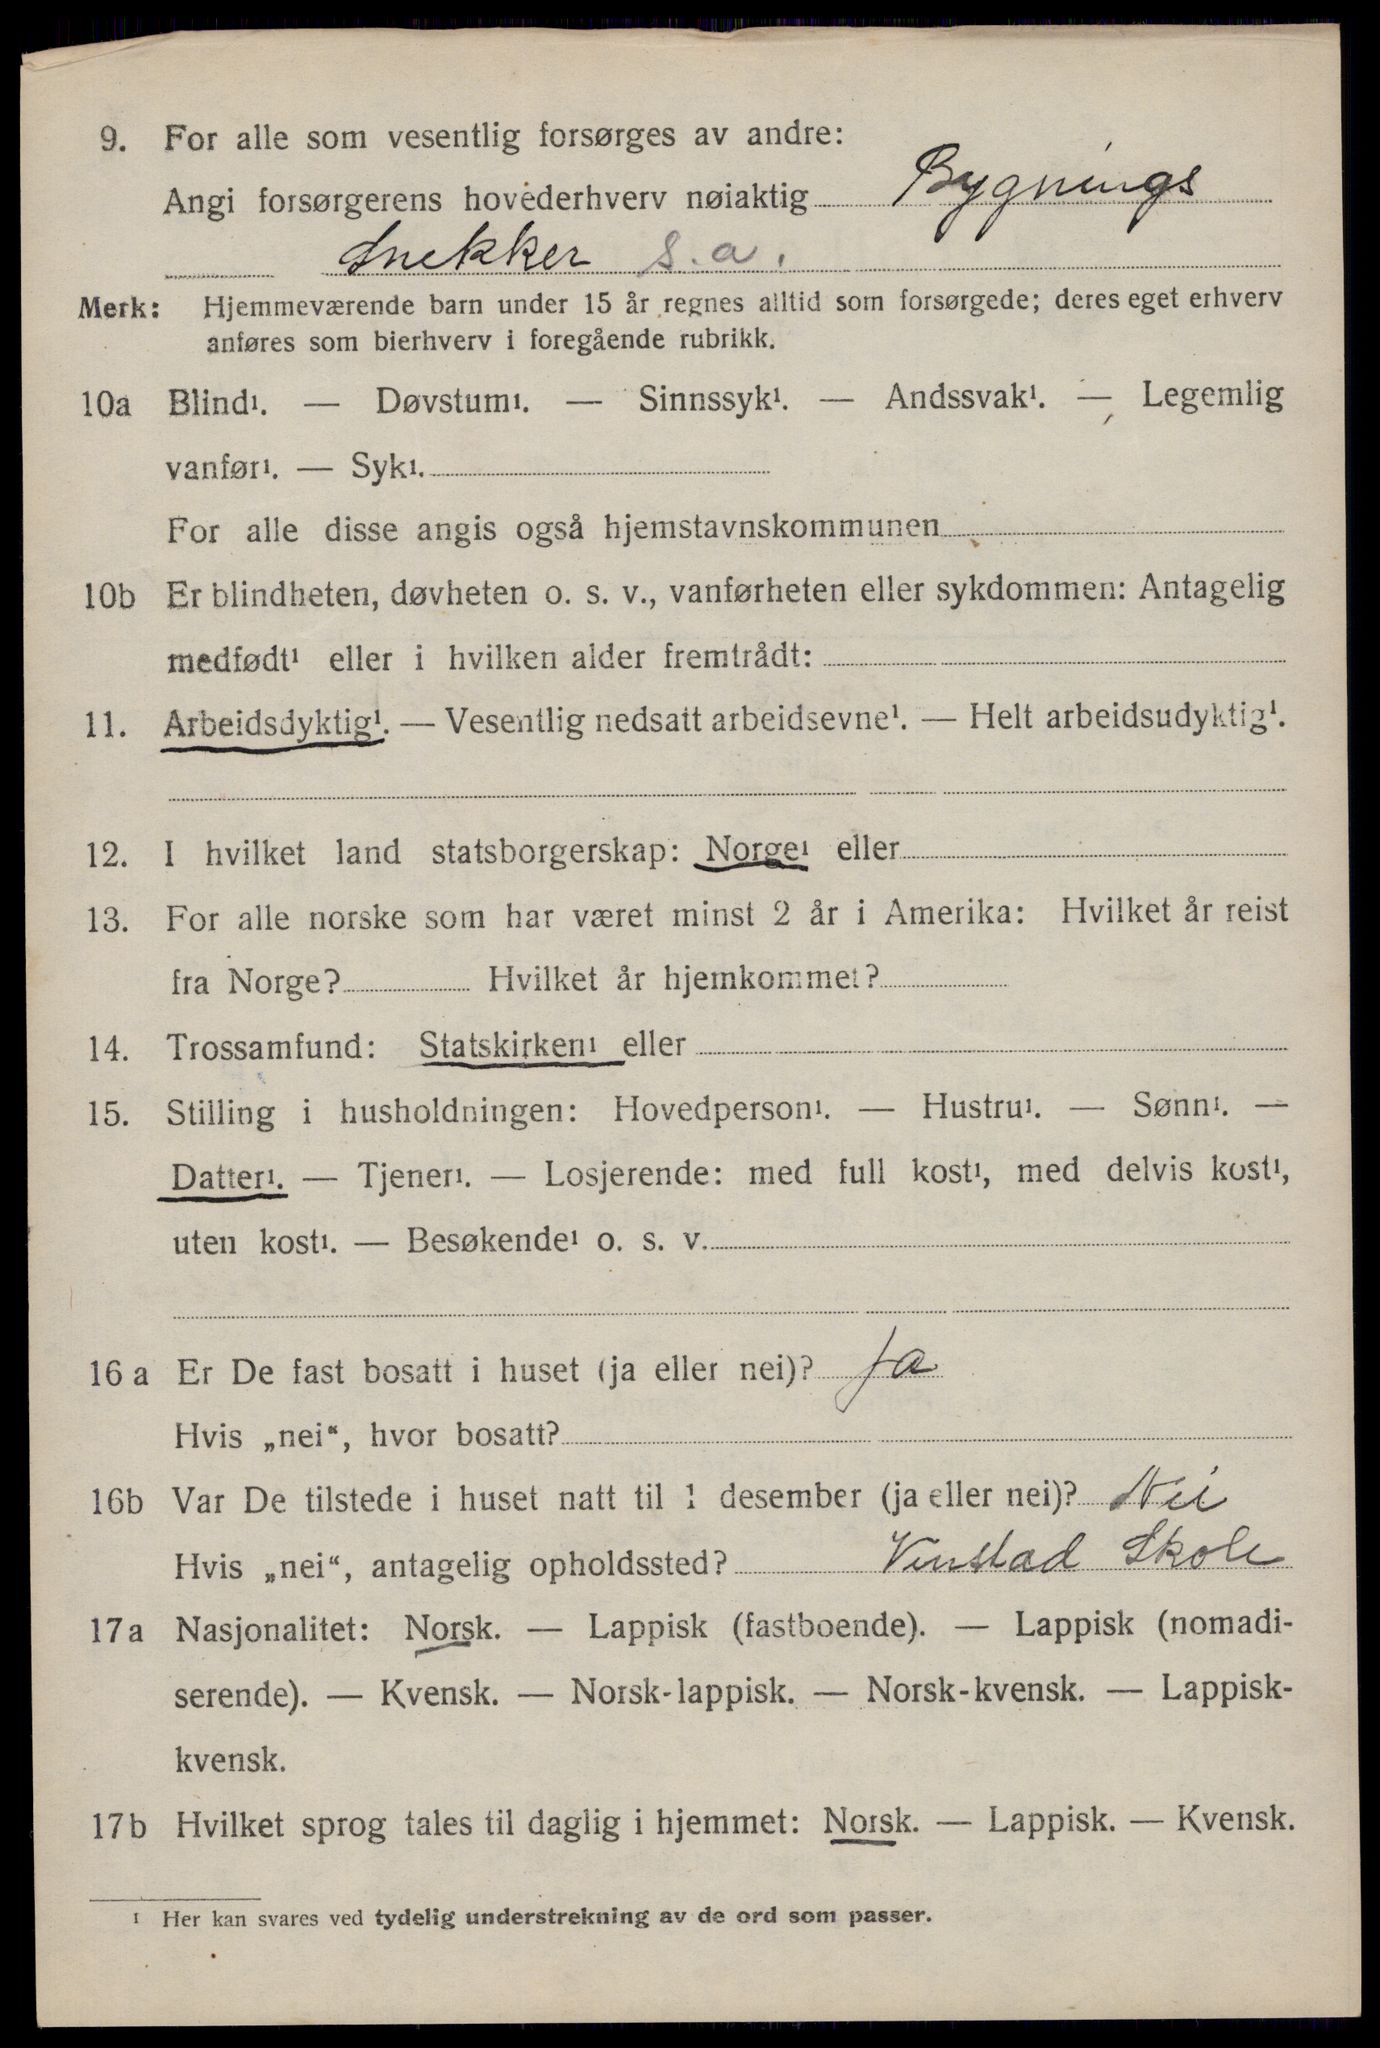 9. For alle som vesentlig forsørges av andre:
Angi forsørgerens hovederhverv nøiaktig Bygnings
Snekker s.a.
Merk: Hjemmeværende barn under 15 år regnes alltid som forsørgede; deres eget erhverv
anføres som bierhverv i foregående rubrikk.
10a Blind¹. — Døvstum¹. — Sinnssyk¹. — Andssvak¹. — Legemlig
vanfør¹. — Syk¹.
For alle disse angis også hjemstavnskommunen
10b Er blindheten, døvheten o. s. v., vanførheten eller sykdommen: Antagelig
medfødt¹ eller i hvilken alder fremtrådt:
11. Arbeidsdyktig¹. — Vesentlig nedsatt arbeidsevne¹. — Helt arbeidsudyktig¹.
12. I hvilket land statsborgerskap: Norge¹ eller
13. For alle norske som har været minst 2 år i Amerika: Hvilket år reist
fra Norge? Hvilket år hjemkommet?
14. Trossamfund: Statskirken¹ eller
15. Stilling i husholdningen: Hovedperson¹. — Hustru¹. — Sønn¹. —
Datter¹. — Tjener¹. — Losjerende: med full kost¹, med delvis kost¹,
uten kost¹. — Besøkende¹ o. s. v.
16 a Er De fast bosatt i huset (ja eller nei)? Ja
Hvis „nei“, hvor bosatt?
16b Var De tilstede i huset natt til 1 desember (ja eller nei)? Nei
Hvis „nei“, antagelig opholdssted? Vinstad Skole
17a Nasjonalitet: Norsk. — Lappisk (fastboende). — Lappisk (nomadi-
serende). — Kvensk. — Norsk-lappisk. — Norsk-kvensk. — Lappisk-
kvensk.
17b Hvilket sprog tales til daglig i hjemmet: Norsk. — Lappisk. — Kvensk.
¹ Her kan svares ved tydelig understrekning av de ord som passer.